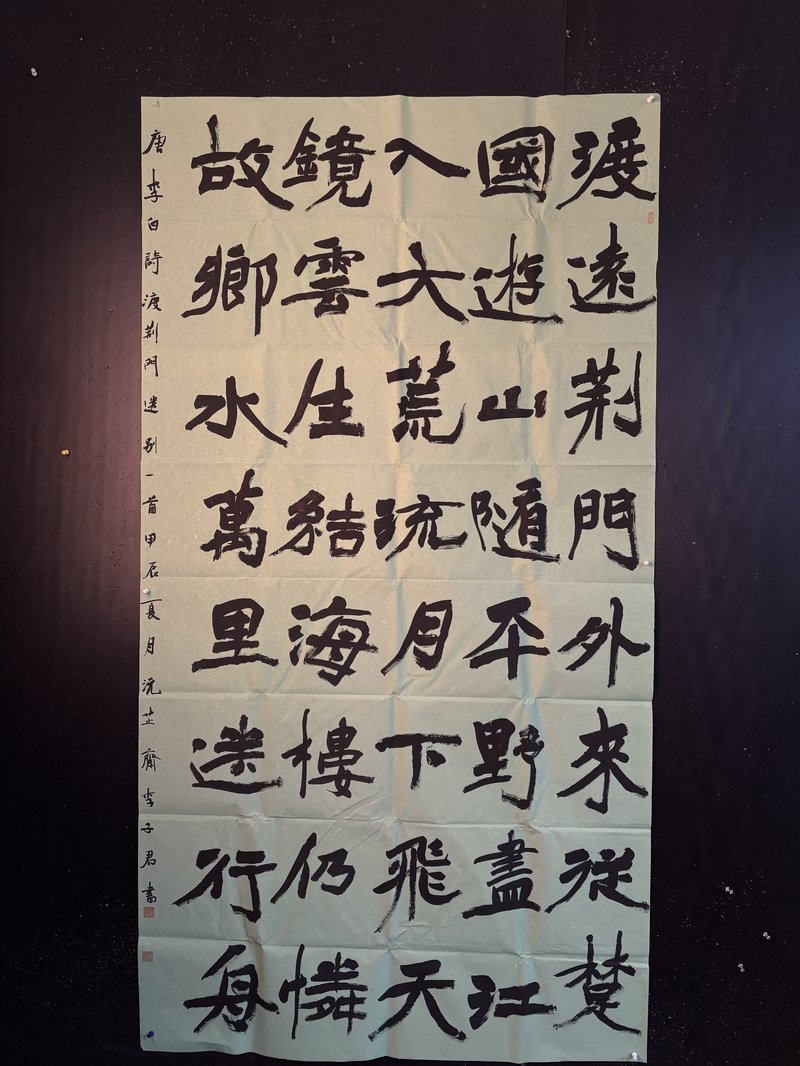 渡遠荊門外來從楚
國遊山隨平野盡江
入大荒流月下飛天
鏡雲生結海樓仍憐
故鄉水萬里送行舟
唐李白詩渡荊門送别一首甲辰夏月沅芷齋李子君書